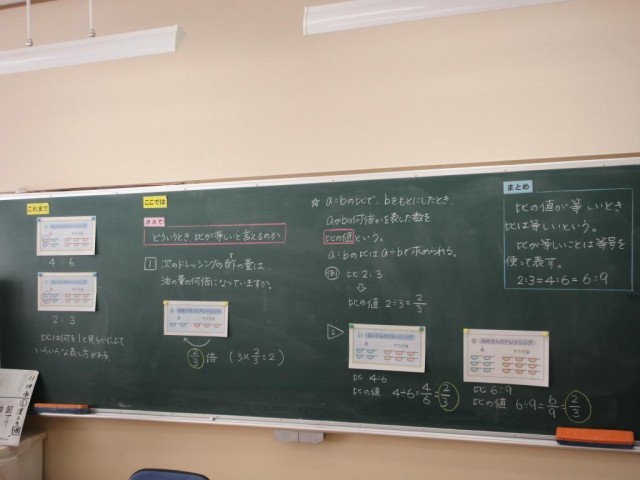 これまで
4:6
2:3
比は何を1と見るかによって
いろいろな表し方がある。
ここでは
めあて
どういうとき、比が等しいと言えるのか
1 次のドレッシングの酢の量は
油の量の何倍になっていますか。
2/3倍 (3×2/3=2)
☆ a:bの比で、bをもとにしたとき
aがbの何倍かを表した数を
比の値という。
a:bの比はa÷bで求められる。
例 比 2:3
比の値 2÷3=2/3
2
比 4:6
比の値 4÷6=4/6=2/3
比 6:9
比の値 6÷9=6/9=2/3
まとめ
比の値が等しいとき
比は等しいという。
比が等しいことは等号を
使って表す。
2:3=4:6=6:9